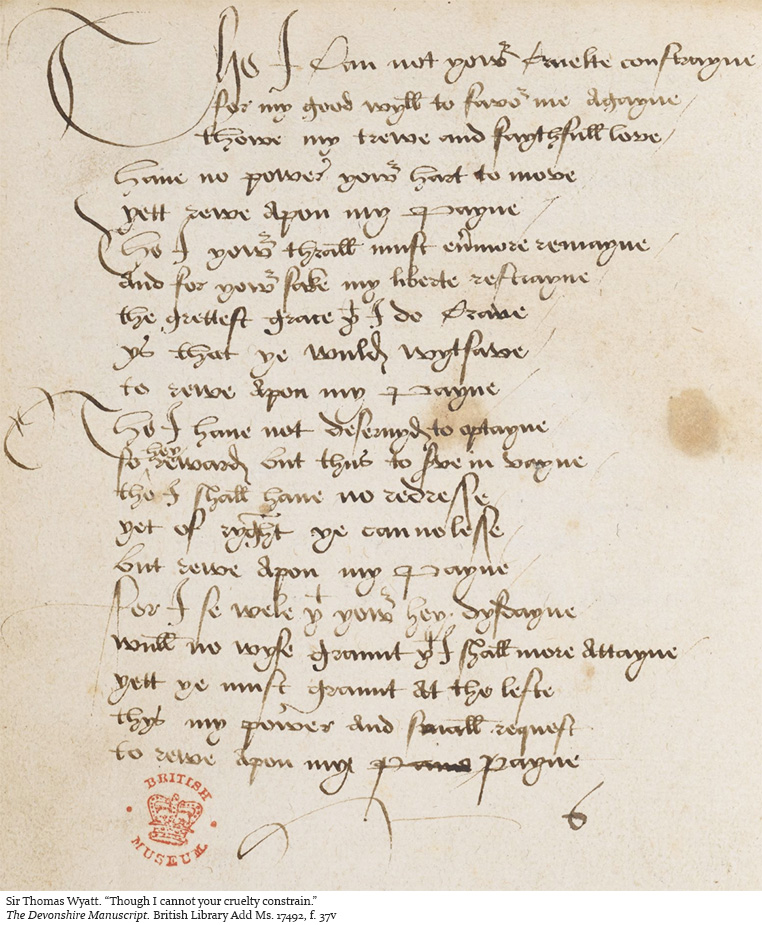 Tho I Can not yowr Cruelte constrayne
for my good wyll to favor me agayne
thowe my trewe and faythfull love
have no power yowr hart to move
yett rewe apon my payne
Tho I yowr thrall must evermore remayne
and for yowr sake my liberte restrayne
the grettest grace yt I do Crave
ys that ye wuld wytsave
to rewe apon my payne
Tho I have not deservyd to optayne
so hey reward but thus to serve in vayne
tho I shall have no redresse
yet of ryght ye can no lesse
but rewe apon my payne
For I se wele yt yowr hey dysdayne
wull no wyse graunt yt I shall more attayne
yett ye must graunt at the leste
thys my power and small request
to rewe apon my payne
BRITISH MUSEUM
6
Sir Thomas Wyatt. “Though I cannot your cruelty constrain.”
The Devonshire Manuscript. British Library Add Ms. 17492, f. 37v